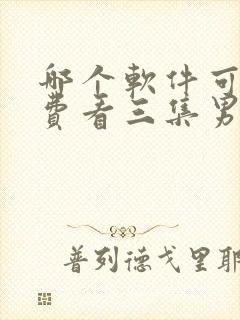 哪个軟件可
費看三集男
普列德戈里耶